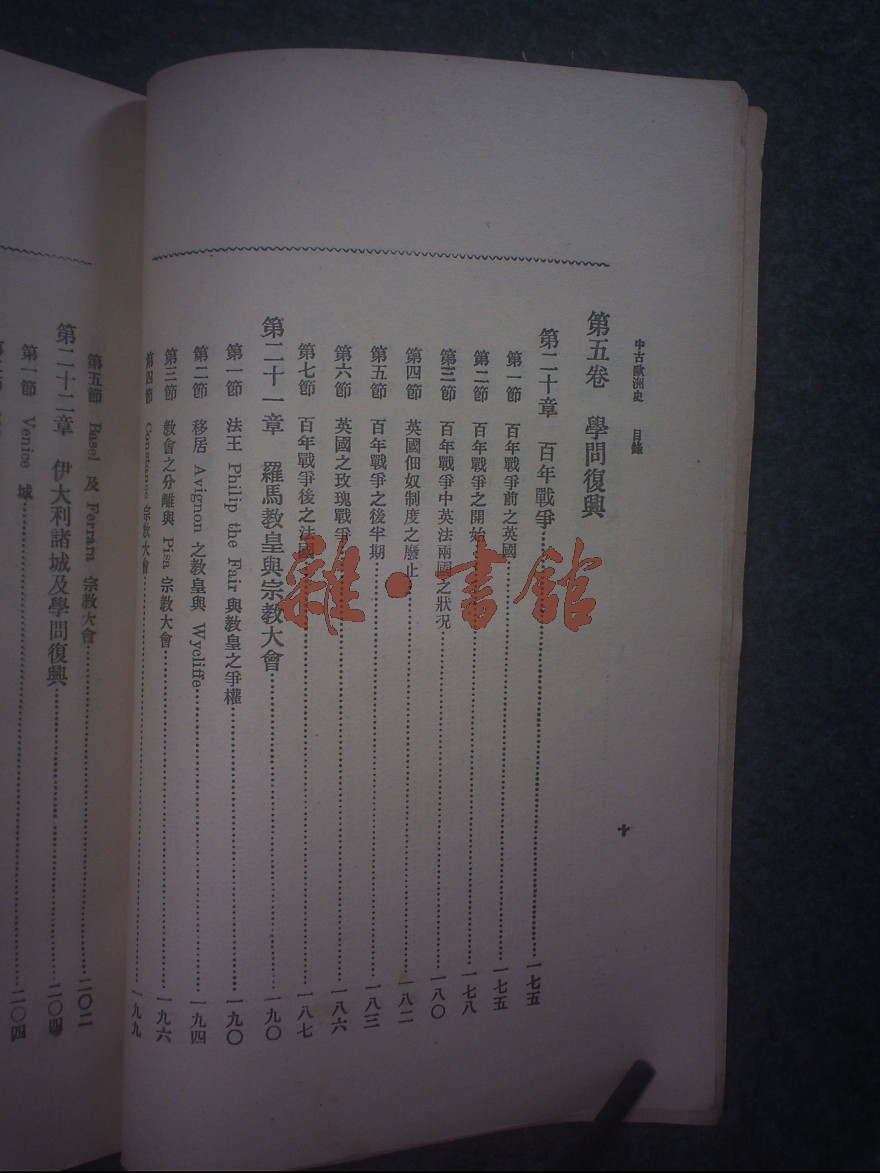 中古歐洲史 目錄
十
第五卷 學問復興
第二十章 百年戰爭……一七五
第一節 百年戰爭前之英國……一七五
第二節 百年戰爭之開始……一七八
第三節 百年戰爭中英法兩國之狀況……一八〇
第四節 英國佃奴制度之廢止……一八二
第五節 百年戰爭之後半期……一八三
第六節 英國之玫瑰戰爭……一八六
第七節 百年戰爭後之法國……一八七
第二十一章 羅馬教皇與宗教大會……一九〇
第一節 法王 Philip the Fair 與教皇之爭權……一九〇
第二節 移居 Avignon 之教皇與 Wycliffe……一九四
第三節 教會之分離與 Pisa 宗教大會……一九六
第四節 Constance 宗教大會……一九九
第五節 Basel 及 Ferrara 宗教大會……二〇二
第二十二章 伊大利諸城及學問復興……二〇四
第一節 Venice 城……二〇四
雜·書館